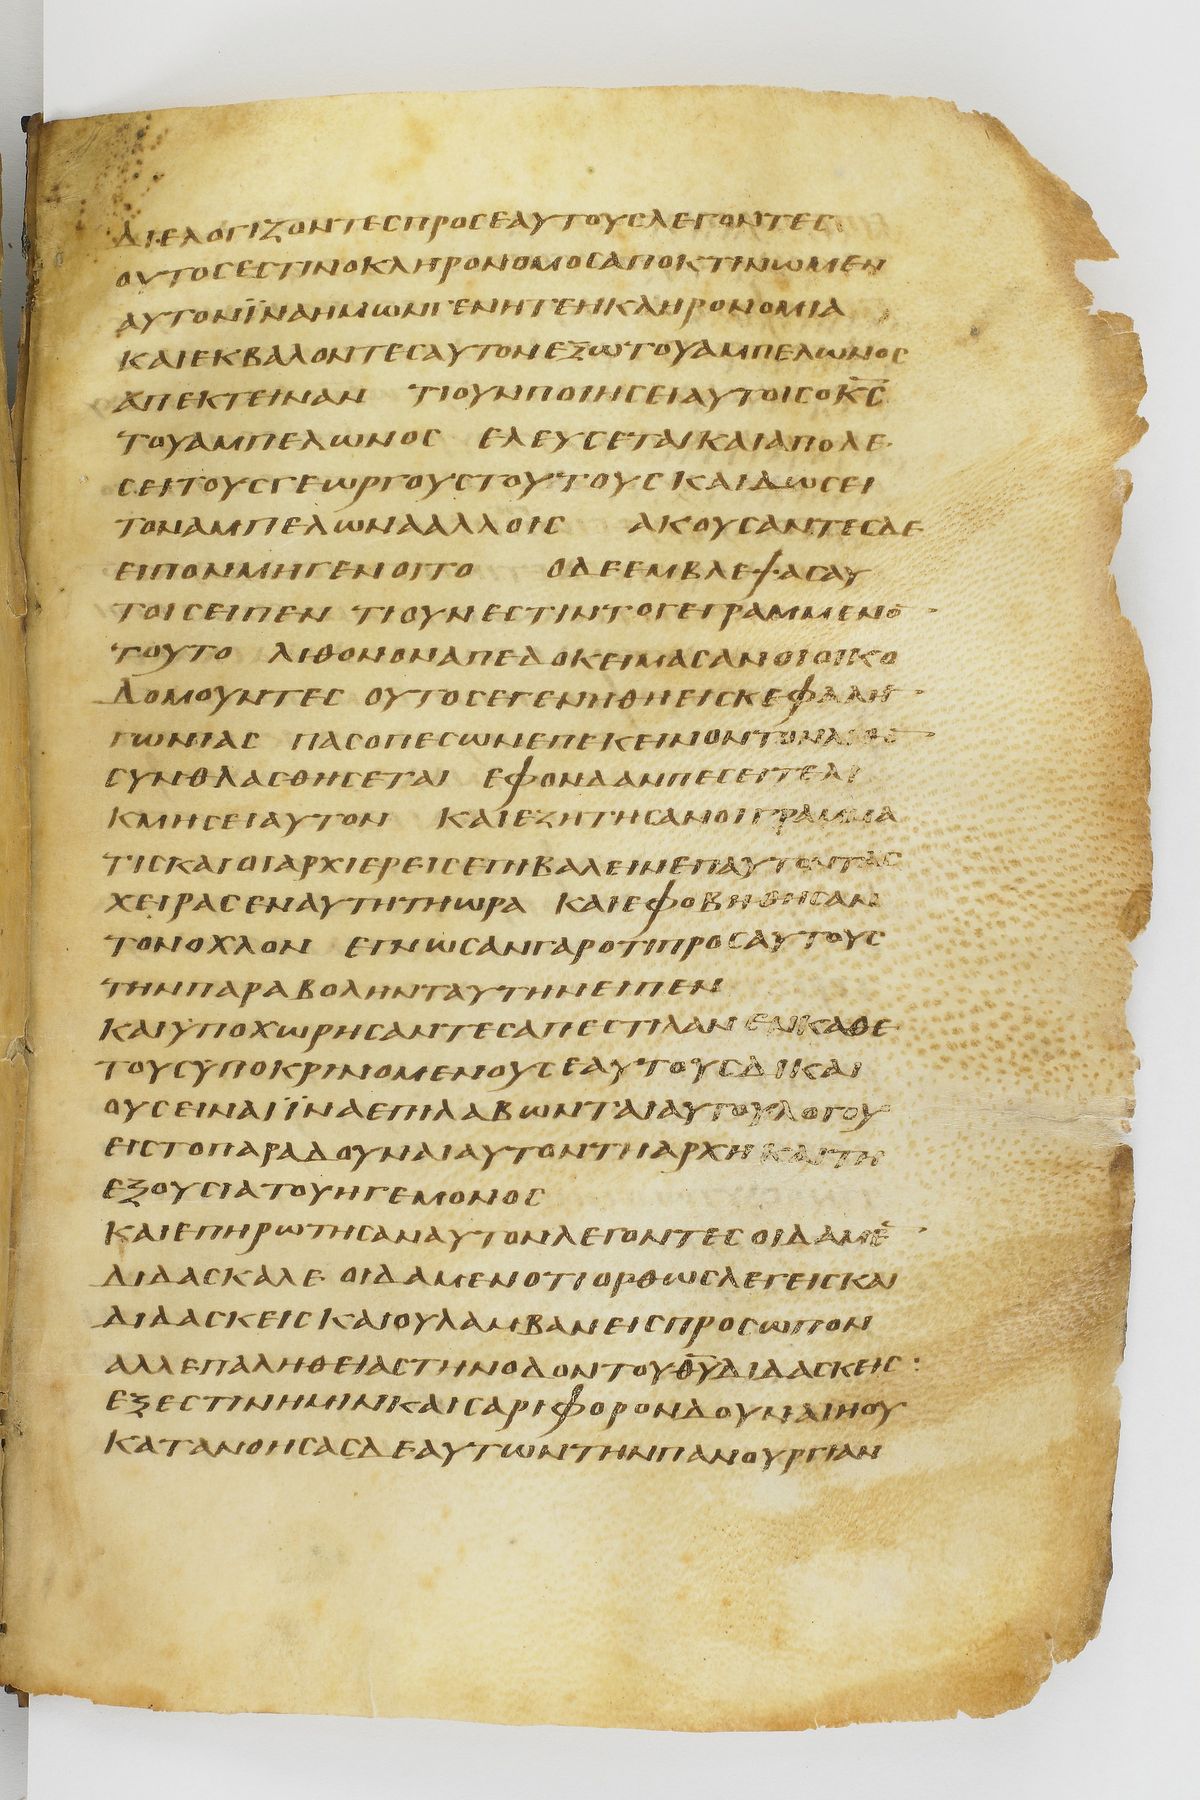 ΔΙΕΛΟΓΙΖΟΝΤΕСΠΡΟСΕΑΥΤΟΥСΛΕΓΟΝΤΕС
ΟΥΤΟСΕСΤΙΝΟΚΛΗΡΟΝΟΜΟСΑΠΟΚΤΙΝΩΜΕΝ
ΑΥΤΟΝΪΝΑΗΜΩΝΓΕΝΗΤΕΗΚΛΗΡΟΝΟΜΙΑ
ΚΑΙΕΚΒΑΛΟΝΤΕСΑΥΤΟΝΕΞΩΤΟΥΑΜΠΕΛΩΝΟС
ΑΠΕΚΤΕΙΝΑΝ ΤΙΟΥΝΠΟΙΗСΕΙΑΥΤΟΙСΟΚ̅С̅
ΤΟΥΑΜΠΕΛΩΝΟС ΕΛΕΥСΕΤΑΙΚΑΙΑΠΟΛΕ
СΕΙΤΟΥСΓΕΩΡΓΟΥСΤΟΥΤΟΥСΚΑΙΔΩСΕΙ
ΤΟΝΑΜΠΕΛΩΝΑΑΛΛΟΙС ΑΚΟΥСΑΝΤΕСΔΕ
ΕΙΠΟΝΜΗΓΕΝΟΙΤΟ ΟΔΕΕΜΒΛΕΨΑСΑΥ
ΤΟΙСΕΙΠΕΝ ΤΙΟΥΝΕСΤΙΝΤΟΓΕΓΡΑΜΜΕΝΟ̅
ΤΟΥΤΟ ΛΙΘΟΝΟΝΑΠΕΔΟΚΕΙΜΑСΑΝΟΙΟΙΚΟ
ΔΟΜΟΥΝΤΕС ΟΥΤΟСΕΓΕΝΗΘΗΕΙСΚΕΦΑΛΗ̅
ΓΩΝΙΑС ΠΑСΟΠΕСΩΝΕΠΕΚΕΙΝΟΝΤΟΝΛΙΘΟ̅
СΥΝΘΛΑСΘΗСΕΤΑΙ ΕΦΟΝΔΑΝΠΕСΕΙΤΕΛΙ
ΚΜΗСΕΙΑΥΤΟΝ ΚΑΙΕΖΗΤΗСΑΝΟΙΓΡΑΜΜΑ
ΤΙСΚΑΙΟΙΑΡΧΙΕΡΕΙСΕΠΙΒΑΛΕΙΝΕΠΑΥΤΟΝΤΑС
ΧΕΙΡΑСΕΝΑΥΤΗΤΗΩΡΑ ΚΑΙΕΦΟΒΗΘΗСΑΝ
ΤΟΝΟΧΛΟΝ ΕΓΝΩСΑΝΓΑΡΟΤΙΠΡΟСΑΥΤΟΥС
ΤΗΝΠΑΡΑΒΟΛΗΝΤΑΥΤΗΝΕΙΠΕΝ
ΚΑΙΥΠΟΧΩΡΗСΑΝΤΕСΑΠΕСΤΙΛΑΝ ΕΝΚΑΘΕ
ΤΟΥСΫΠΟΚΡΙΝΟΜΕΝΟΥСΕΑΥΤΟΥСΔΙΚΑΙ
ΟΥСΕΙΝΑΙΪΝΑΕΠΙΛΑΒΩΝΤΑΙΑΥΤΟΥΛΟΓΟΥ
ΕΙСΤΟΠΑΡΑΔΟΥΝΑΙΑΥΤΟΝΤΗΑΡΧΗΚΑΙΤΗ
ΕΞΟΥСΙΑΤΟΥΗΓΕΜΟΝΟС
ΚΑΙΕΠΗΡΩΤΗСΑΝΑΥΤΟΝΛΕΓΟΝΤΕС ΟΙΔΑΜΕ̅
ΔΙΔΑСΚΑΛΕ ΟΙΔΑΜΕΝΟΤΙΟΡΘΩСΛΕΓΕΙСΚΑΙ
ΔΙΔΑСΚΕΙСΚΑΙΟΥΛΑΜΒΑΝΕΙСΠΡΟСΩΠΟΝ
ΑΛΛΕΠΑΛΗΘΕΙΑСΤΗΝΟΔΟΝΤΟΥΘ̅Υ̅ΔΙΔΑСΚΕΙС:
ΕΞΕСΤΙΝΗΜΙΝΚΑΙСΑΡΙΦΟΡΟΝΔΟΥΝΑΙΗΟΥ
ΚΑΤΑΝΟΗСΑСΔΕΑΥΤΩΝΤΗΝΠΑΝΟΥΡΓΙΑΝ